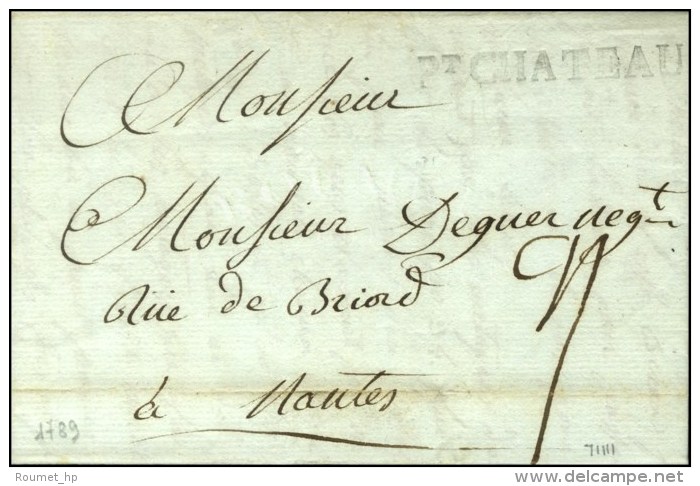 Pᵗ CHATEAU
Monsieur
Monsieur Deguer negᵗ
Rüe de Briord
à Nantes
1789
Roumet_hp
delcampe.net